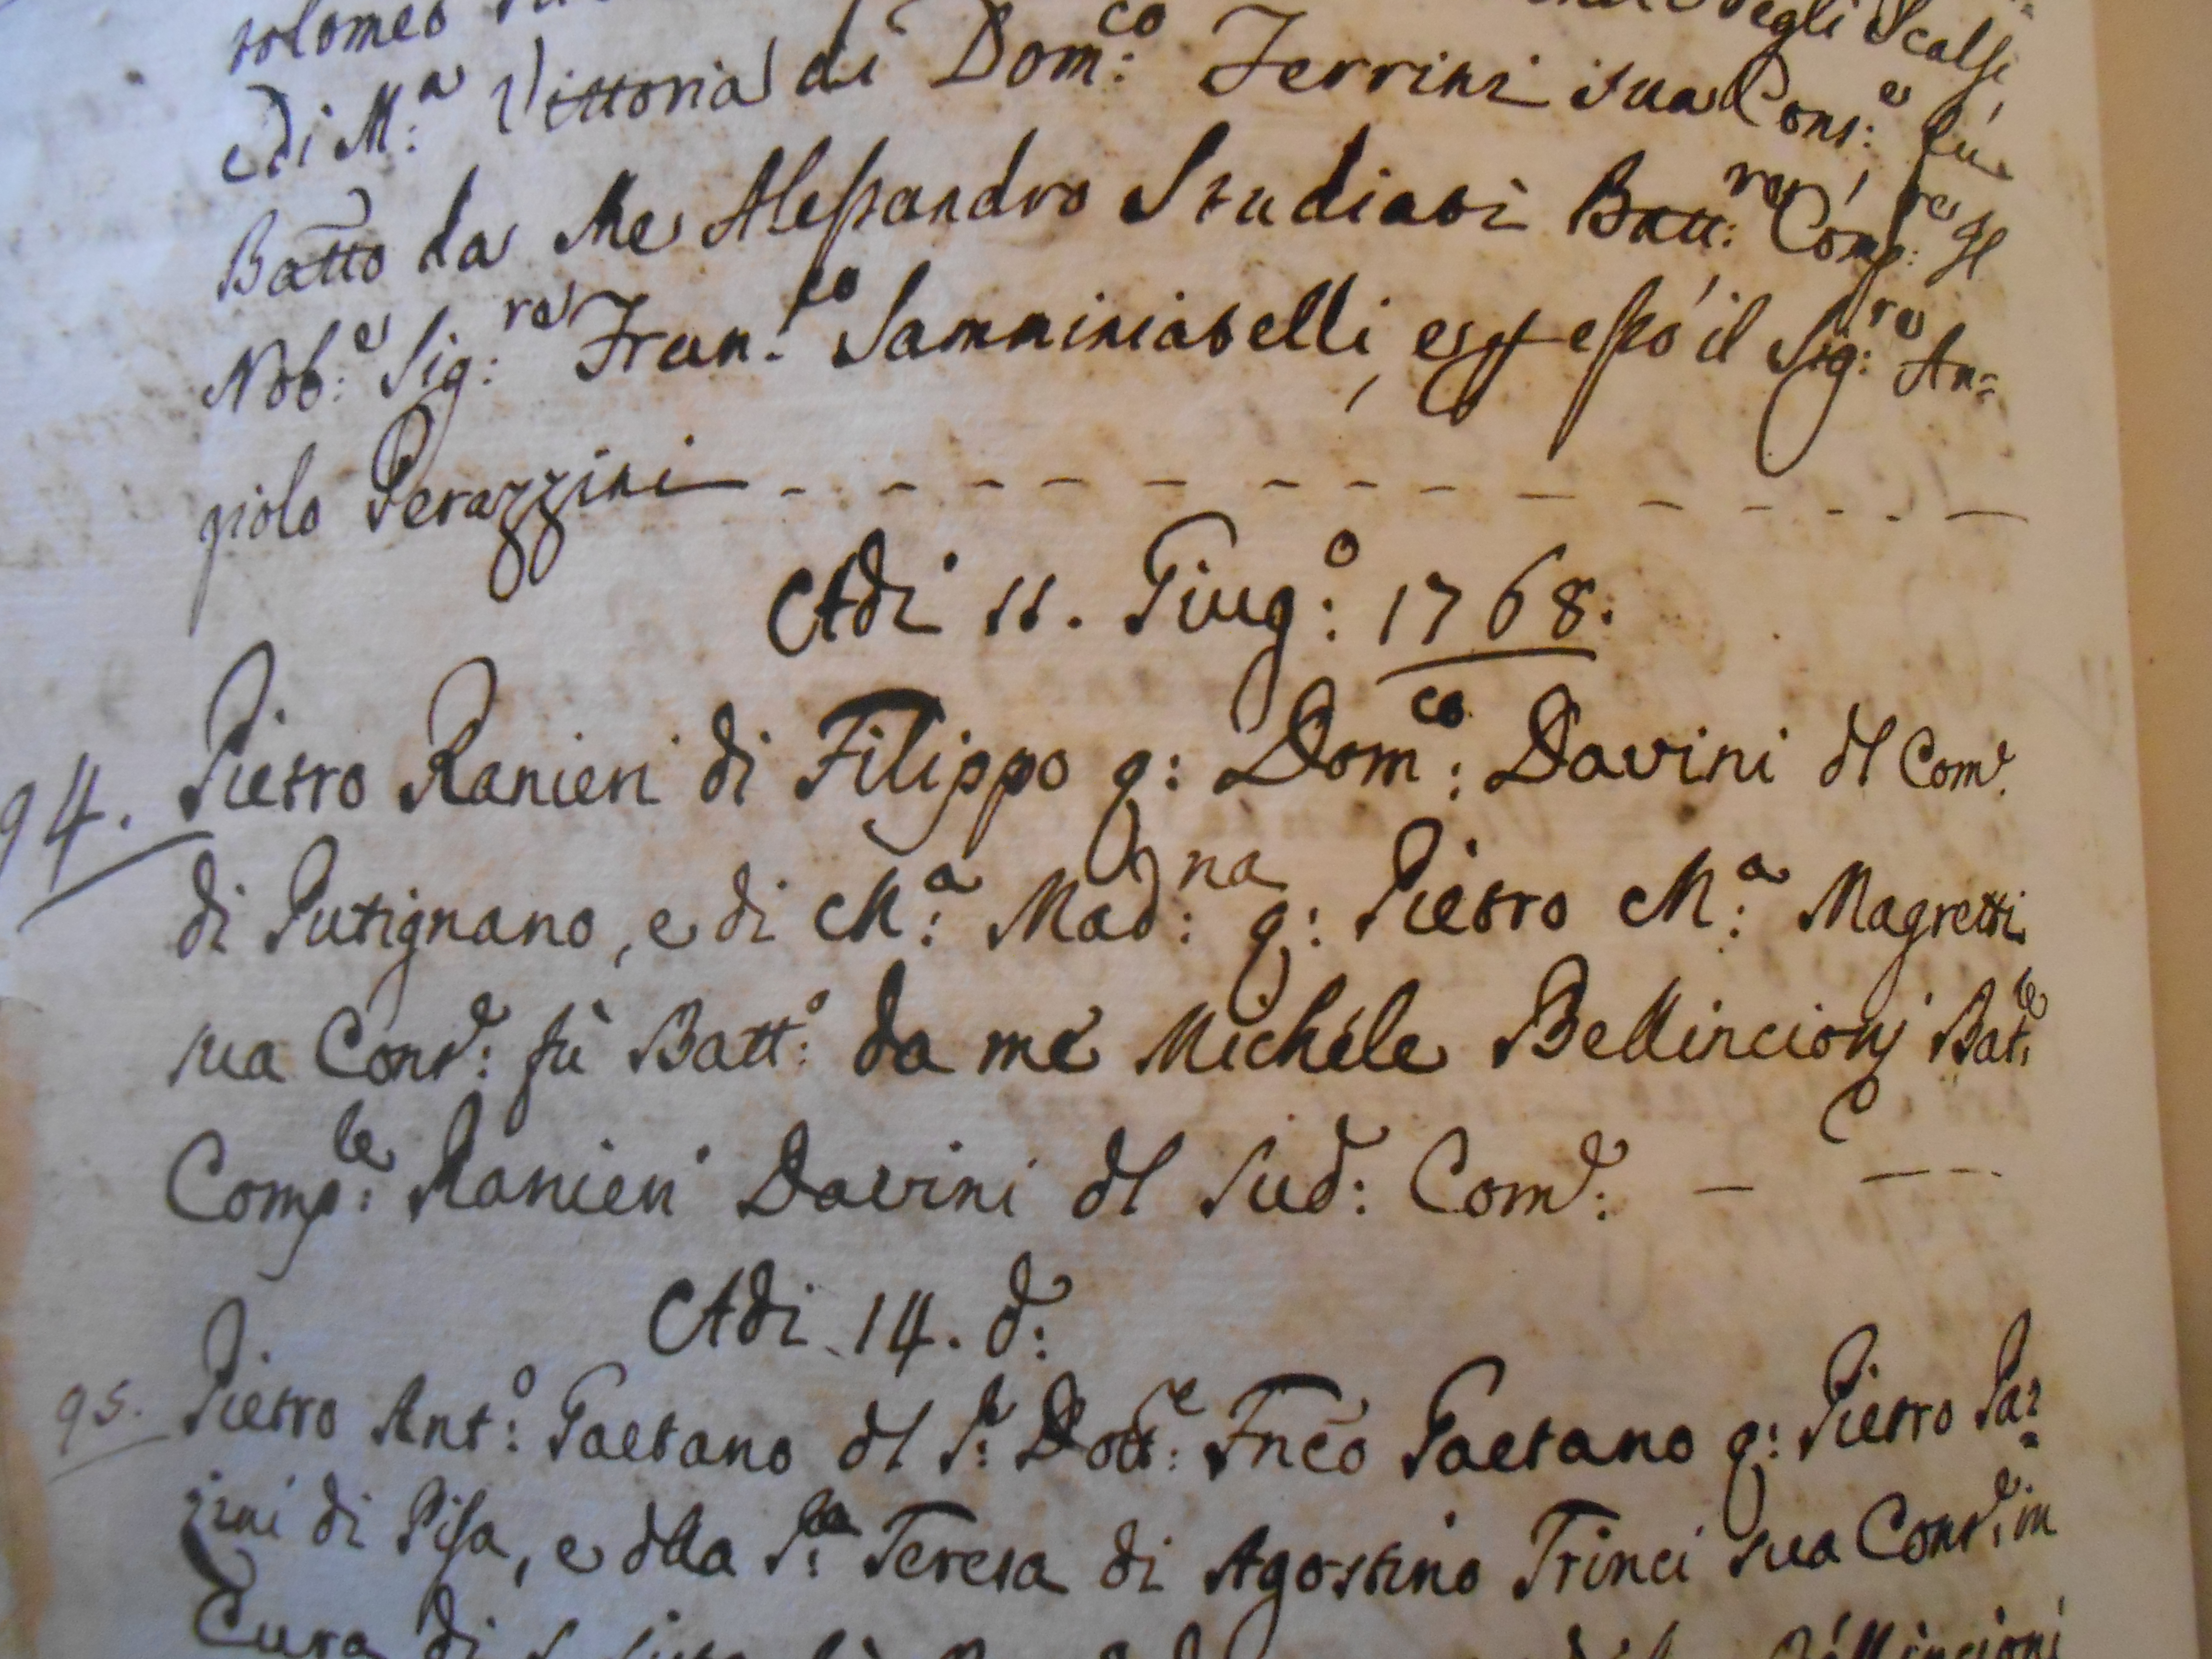 tolomeo
e Di M:a Vittoria di Dom:co Ferrini sua Cons:e fù
Batto da Me Alessandro Studiati Batt:re Comp:re Il
Nob:e Sig:re Fran:co Samminiatelli, e p esso il Sig:re An=
giolo Perazzini
Adi 11. Giug:o 1768.
94. Pietro Ranieri di Filippo q: Dom:co Davini dl Come.
di Putignano, e di M:a Mad:na q: Pietro M:a Magretti
sua Conse: fù Batt:o da me Michele Bellincionj Batte.
Comp:le Ranieri Davini dl Sud: Come:
Adi 14. d:
95. Pietro Ant:o Gaetano dl S:r Dott:e Fnco Gaetano q: Pietro Pa=
zini di Pisa, e dlla S:ra Teresa di Agostino Trinci sua Conse: in
Cura di Bellincioni